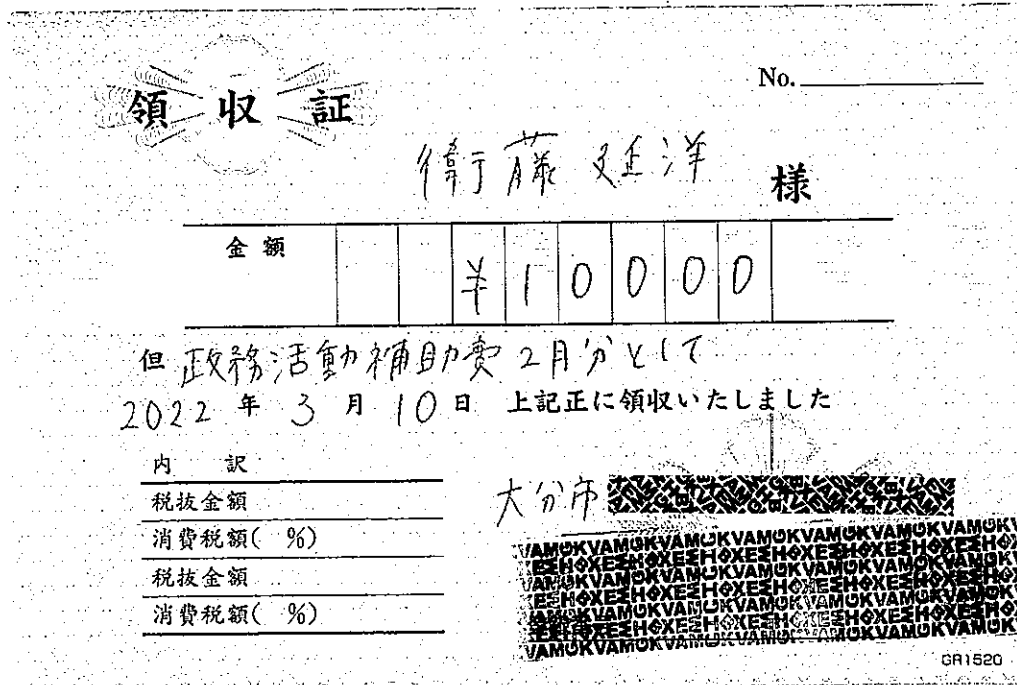 No.
領収証
衛藤延洋 様
金額 ¥10000
但 政務活動補助費2月分として
2022年3月10日 上記正に領収いたしました
内訳
税抜金額
消費税額( %)
税抜金額
消費税額( %)
大分市
GR1520